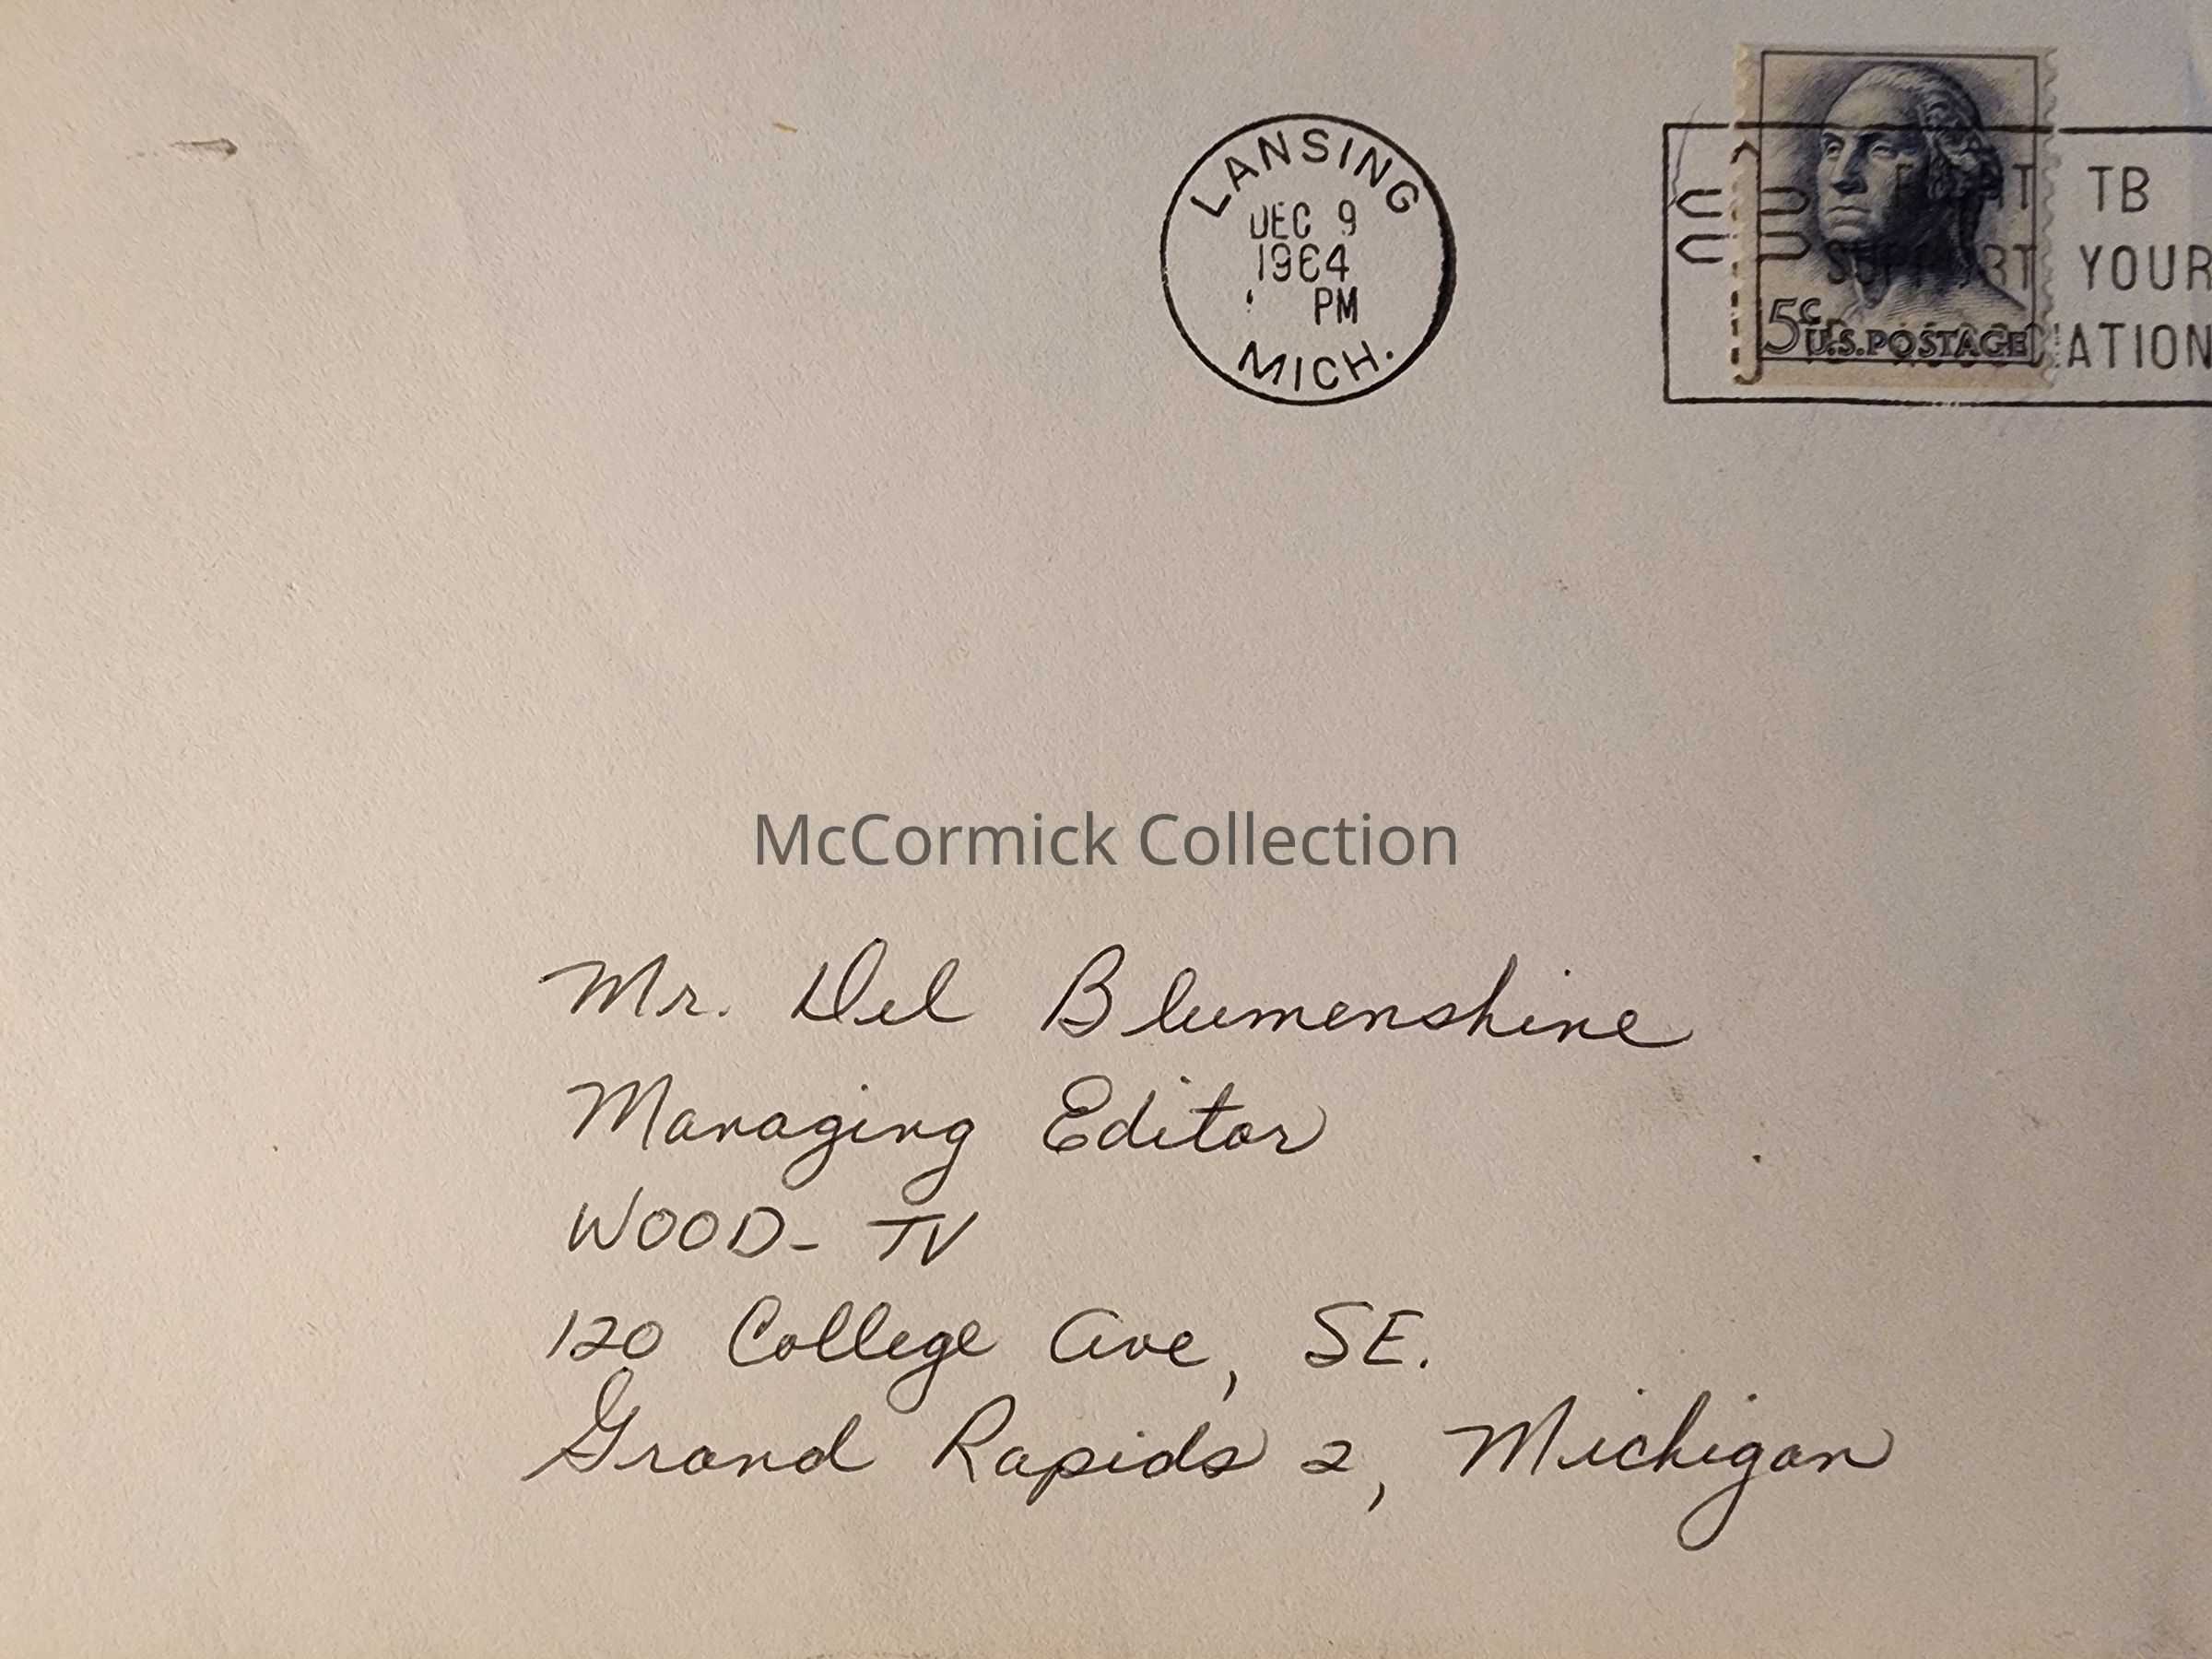 LANSING
DEC 9
1964
PM
MICH.
TB
YOUR
5c U.S. POSTAGE
McCormick Collection
Mr. Del Blumenshine
Managing Editor
WOOD- TV
120 College Ave, SE.
Grand Rapids 2, Michigan